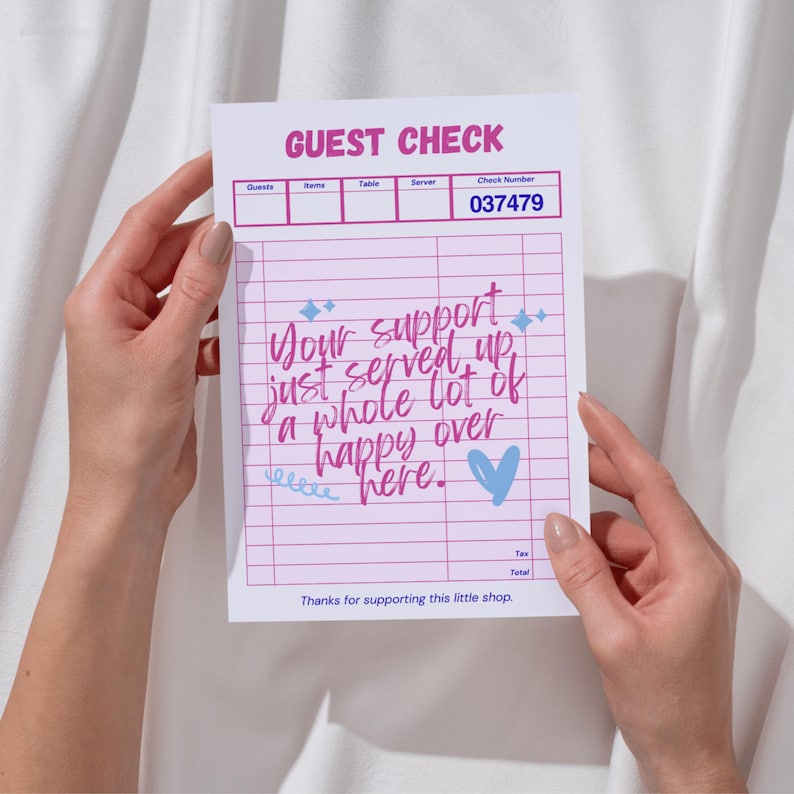 GUEST CHECK
Guests Items Table Server Check Number
037479
Your support
just served up
a whole lot of
happy over
here.
Tax
Total
Thanks for supporting this little shop.